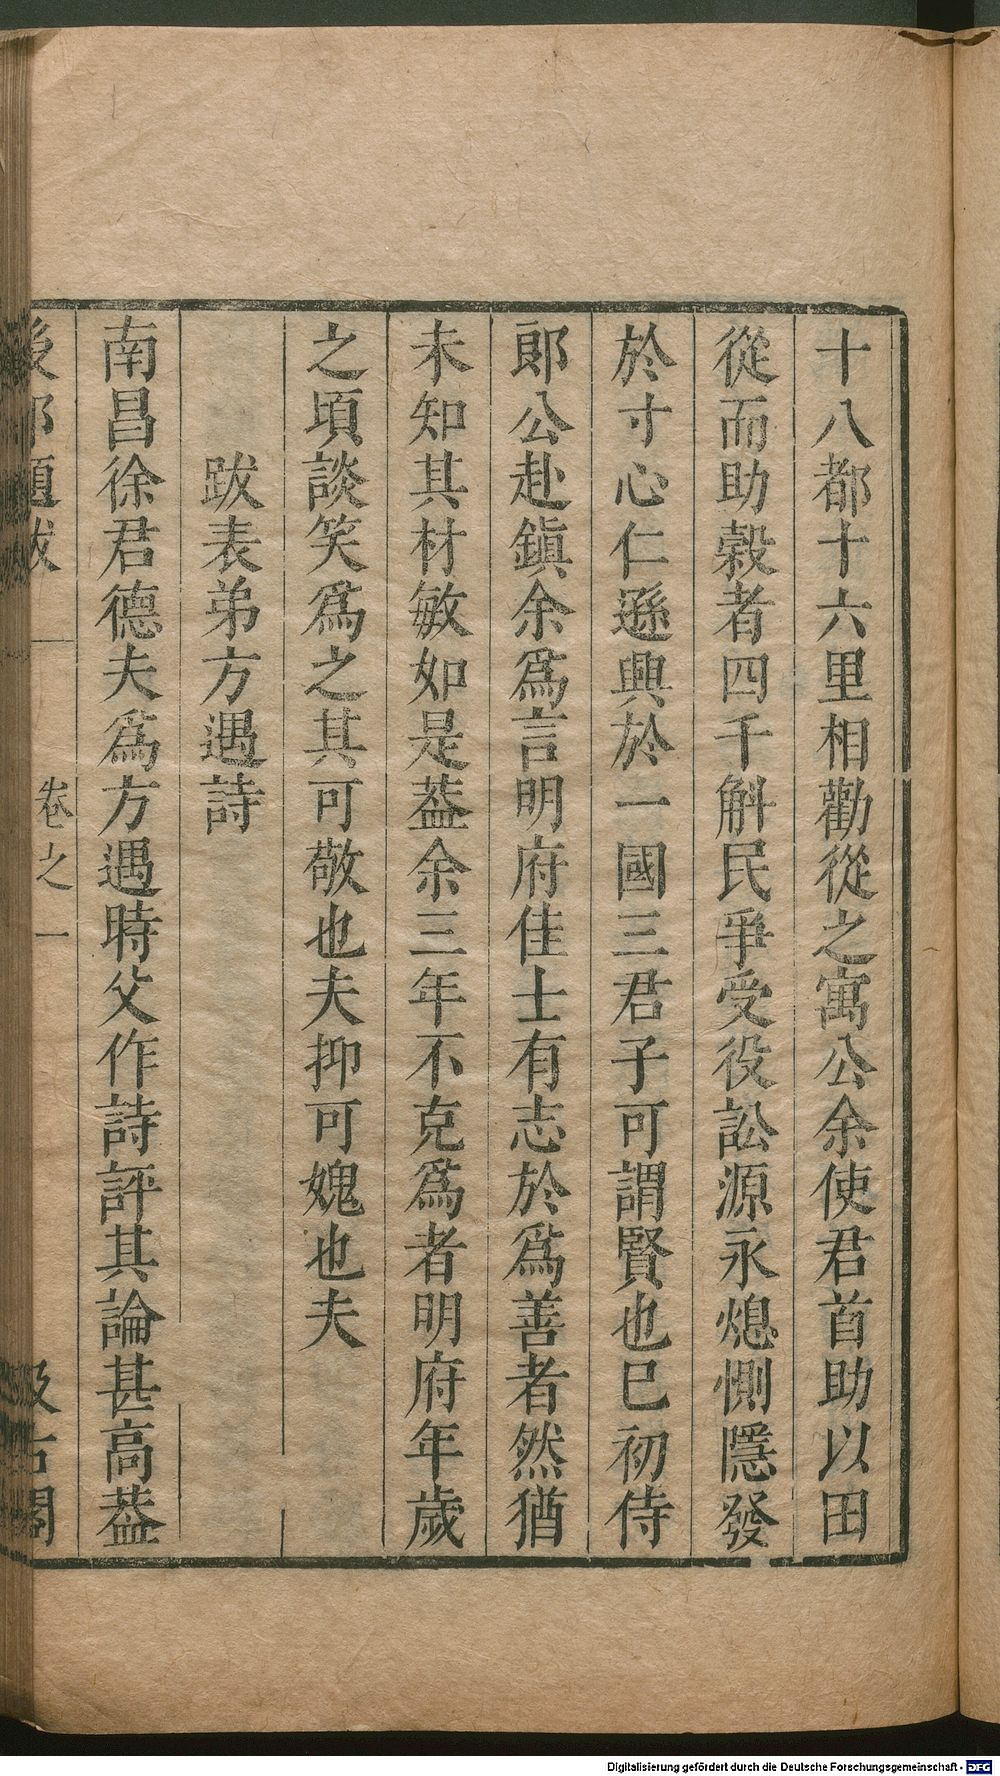 十八都十六里相勸從之寓公余使君首助以田
從而助穀者四千斛民爭受役訟源永熄惻隱發
於寸心仁遜興於一國三君子可謂賢也巳初侍
郎公赴鎭余爲言明府佳士有志於爲善者然猶
未知其材敏如是葢余三年不克爲者明府年歲
之頃談笑爲之其可敬也夫抑可媿也夫
跋表弟方遇詩
南昌徐君德夫爲方遇時父作詩評其論甚高葢
後邨題跋 卷之一 汲古閣
Digitalisierung gefördert durch die Deutsche Forschungsgemeinschaft - DFG